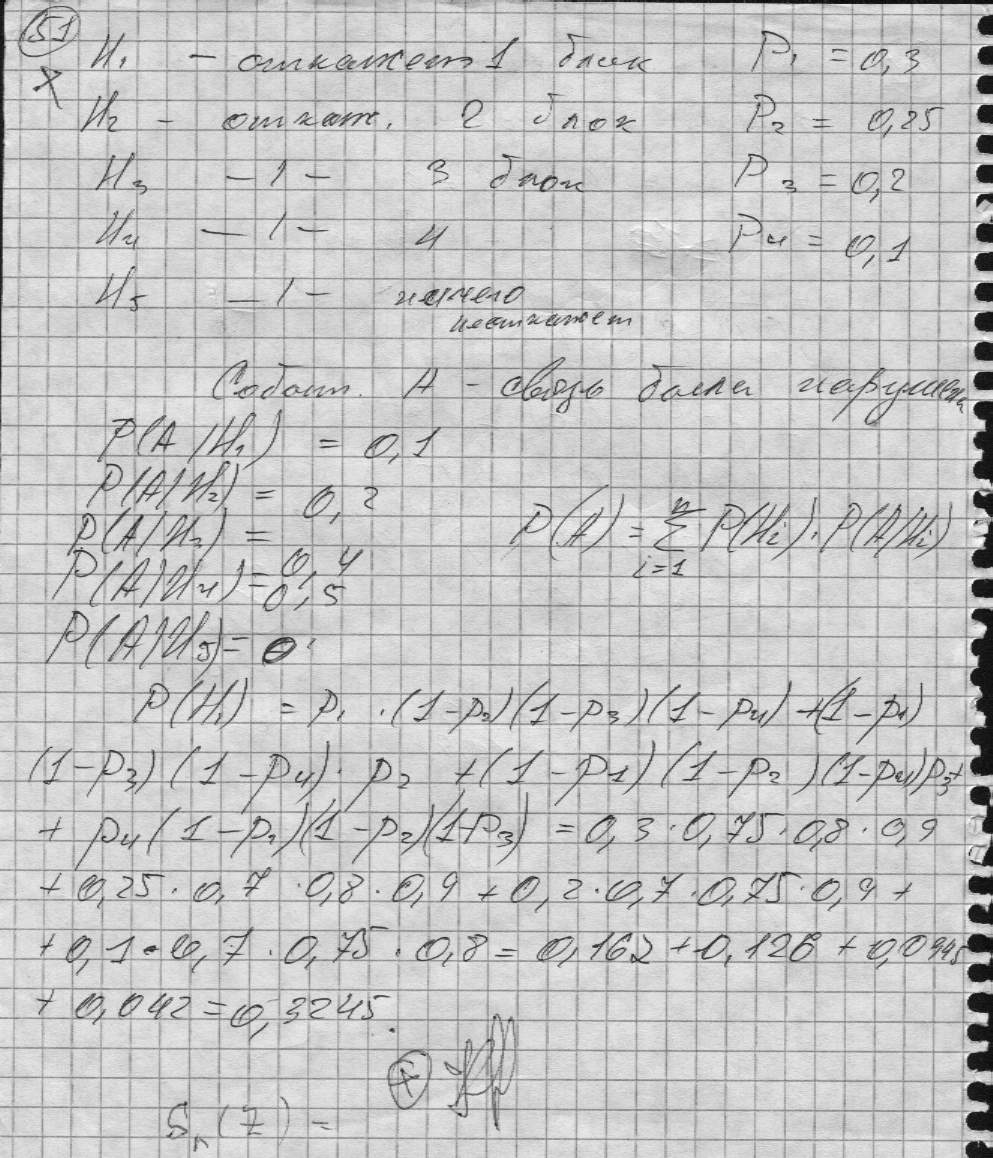 51
H₁ - откажет 1 блок P₁ = 0,3
H₂ - откаж. 2 блок P₂ = 0,25
H₃ — 1 — 3 блок P₃ = 0,2
H₄ — 1 — 4 P₄ = 0,1
H₅ — 1 — ничего
неоткажет
Событ. A - связь была нарушена
P(A/H₁) = 0,1
P(A/H₂) = 0,2
P(A/H₃) = 0,4
P(A) = Σ P(Hi) · P(A/Hi)
n
i=1
P(A/H₄) = 0,5
P(A/H₅) = 0
P(H₁) = p₁ · (1-p₂)(1-p₃)(1-p₄) + (1-p₁)
(1-p₃)(1-p₄) · p₂ + (1-p₁)(1-p₂)(1-p₄)p₃ +
+ p₄(1-p₁)(1-p₂)(1-p₃) = 0,3 · 0,75 · 0,8 · 0,9
+ 0,25 · 0,7 · 0,8 · 0,9 + 0,2 · 0,7 · 0,75 · 0,9 +
+ 0,1 · 0,7 · 0,75 · 0,8 = 0,162 + 0,126 + 0,0945
+ 0,042 = 0,3245
+
Sn(Z) =